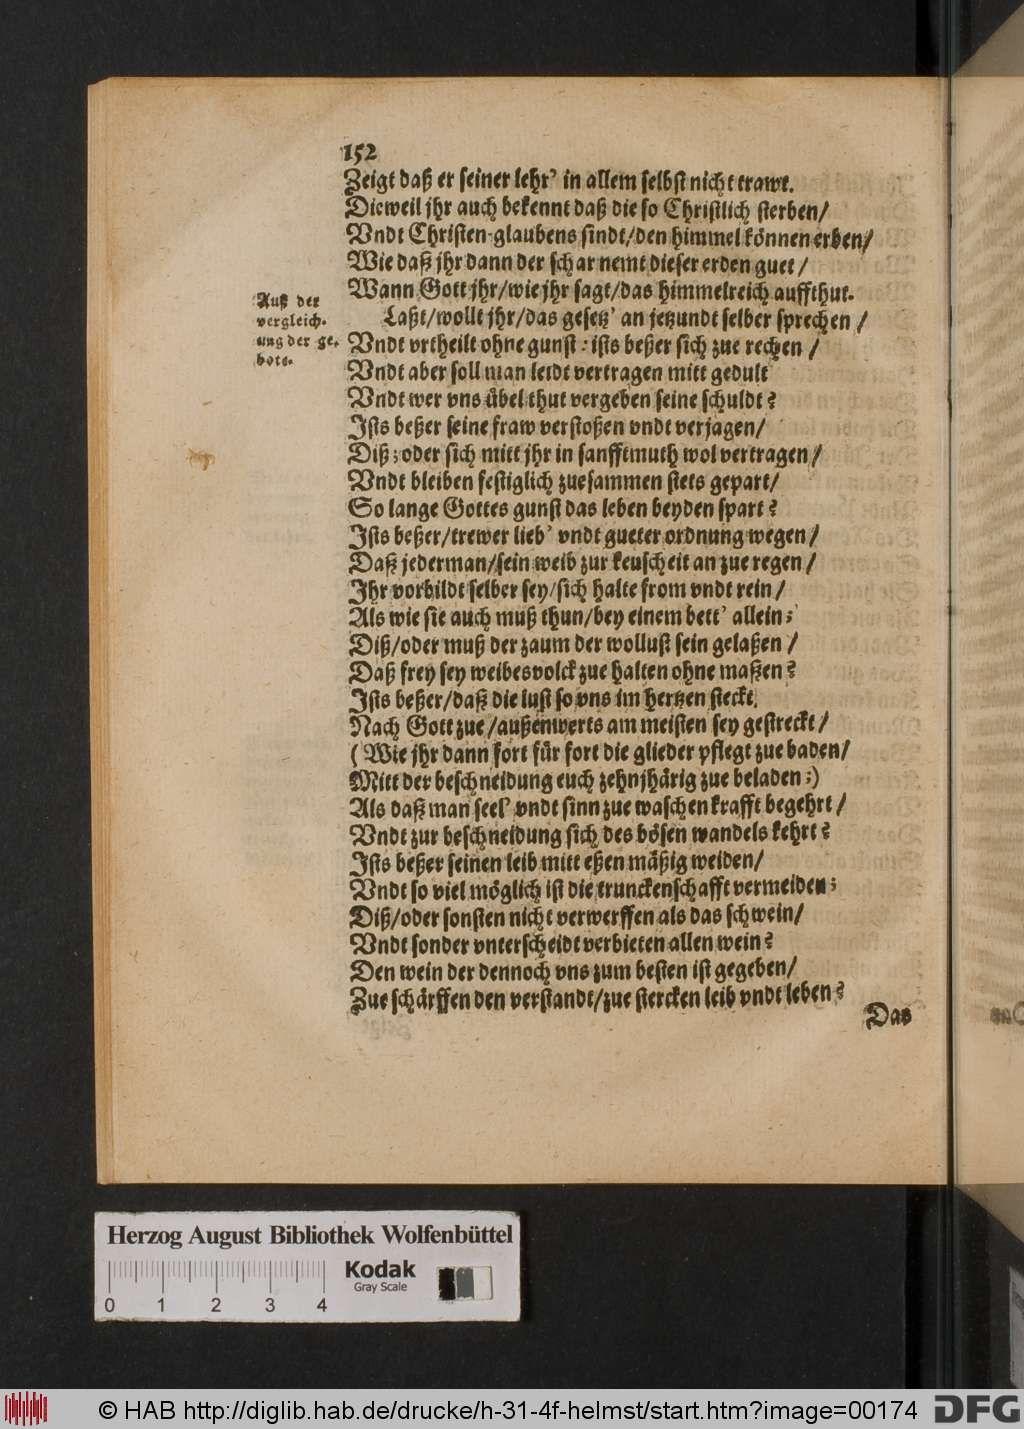 152
Zeigt daß er seiner lehr’ in allem selbst nicht trawt.
Dieweil jhr auch bekennt daß die so Christlich sterben/
Vndt Christen glaubens sindt/den himmel können erben/
Wie daß jhr dann der schar nemt dieser erden guet/
Wann Gott jhr/wie jhr sagt/das himmelreich auffthut.
Auß der
vergleich-
ung der ge-
bote.
Laßt/wollt jhr/das gesetz’ an jetzundt selber sprechen/
Vndt vrtheilt ohne gunst: ists beßer sich zue rechen/
Vndt aber soll man leidt vertragen mitt gedult
Vndt wer vns übel thut vergeben seine schuldt?
Ists beßer seine fraw verstoßen vndt verjagen/
Diß; oder sich mitt jhr in sanfftmuth wol vertragen/
Vndt bleiben festiglich zuesammen stets gepart/
So lange Gottes gunst das leben beyden spart?
Ists beßer/trewer lieb’ vndt gueter ordnung wegen/
Daß jederman/sein weib zur keuscheit an zue regen/
Ihr vorbildt selber sey/sich halte from vndt rein/
Als wie sie auch muß thun/bey einem bett’ allein;
Diß/oder muß der zaum der wollust sein gelaßen/
Daß frey sey weibesvolck zue halten ohne maßen?
Ists beßer/daß die lust so vns im hertzen steckt,
Nach Gott zue/außenwerts am meisten sey gestreckt/
(Wie jhr dann fort für fort die glieder pflegt zue baden/
Mitt der beschneidung euch zehnjhärig zue beladen;)
Als daß man seel’ vndt sinn zue waschen krafft begehrt/
Vndt zur beschneidung sich des bösen wandels kehrt?
Ists beßer seinen leib mitt eßen mäßig weiden/
Vndt so viel möglich ist die trunckenschafft vermeiden;
Diß/oder sonsten nicht verwerffen als das schwein/
Vndt sonder vnterscheidt verbieten allen wein?
Den wein der dennoch vns zum besten ist gegeben/
Zue schärffen den verstandt/zue stercken leib vndt leben?
Das
Herzog August Bibliothek Wolfenbüttel
Kodak
Gray Scale
0 1 2 3 4
© HAB http://diglib.hab.de/drucke/h-31-4f-helmst/start.htm?image=00174
DFG